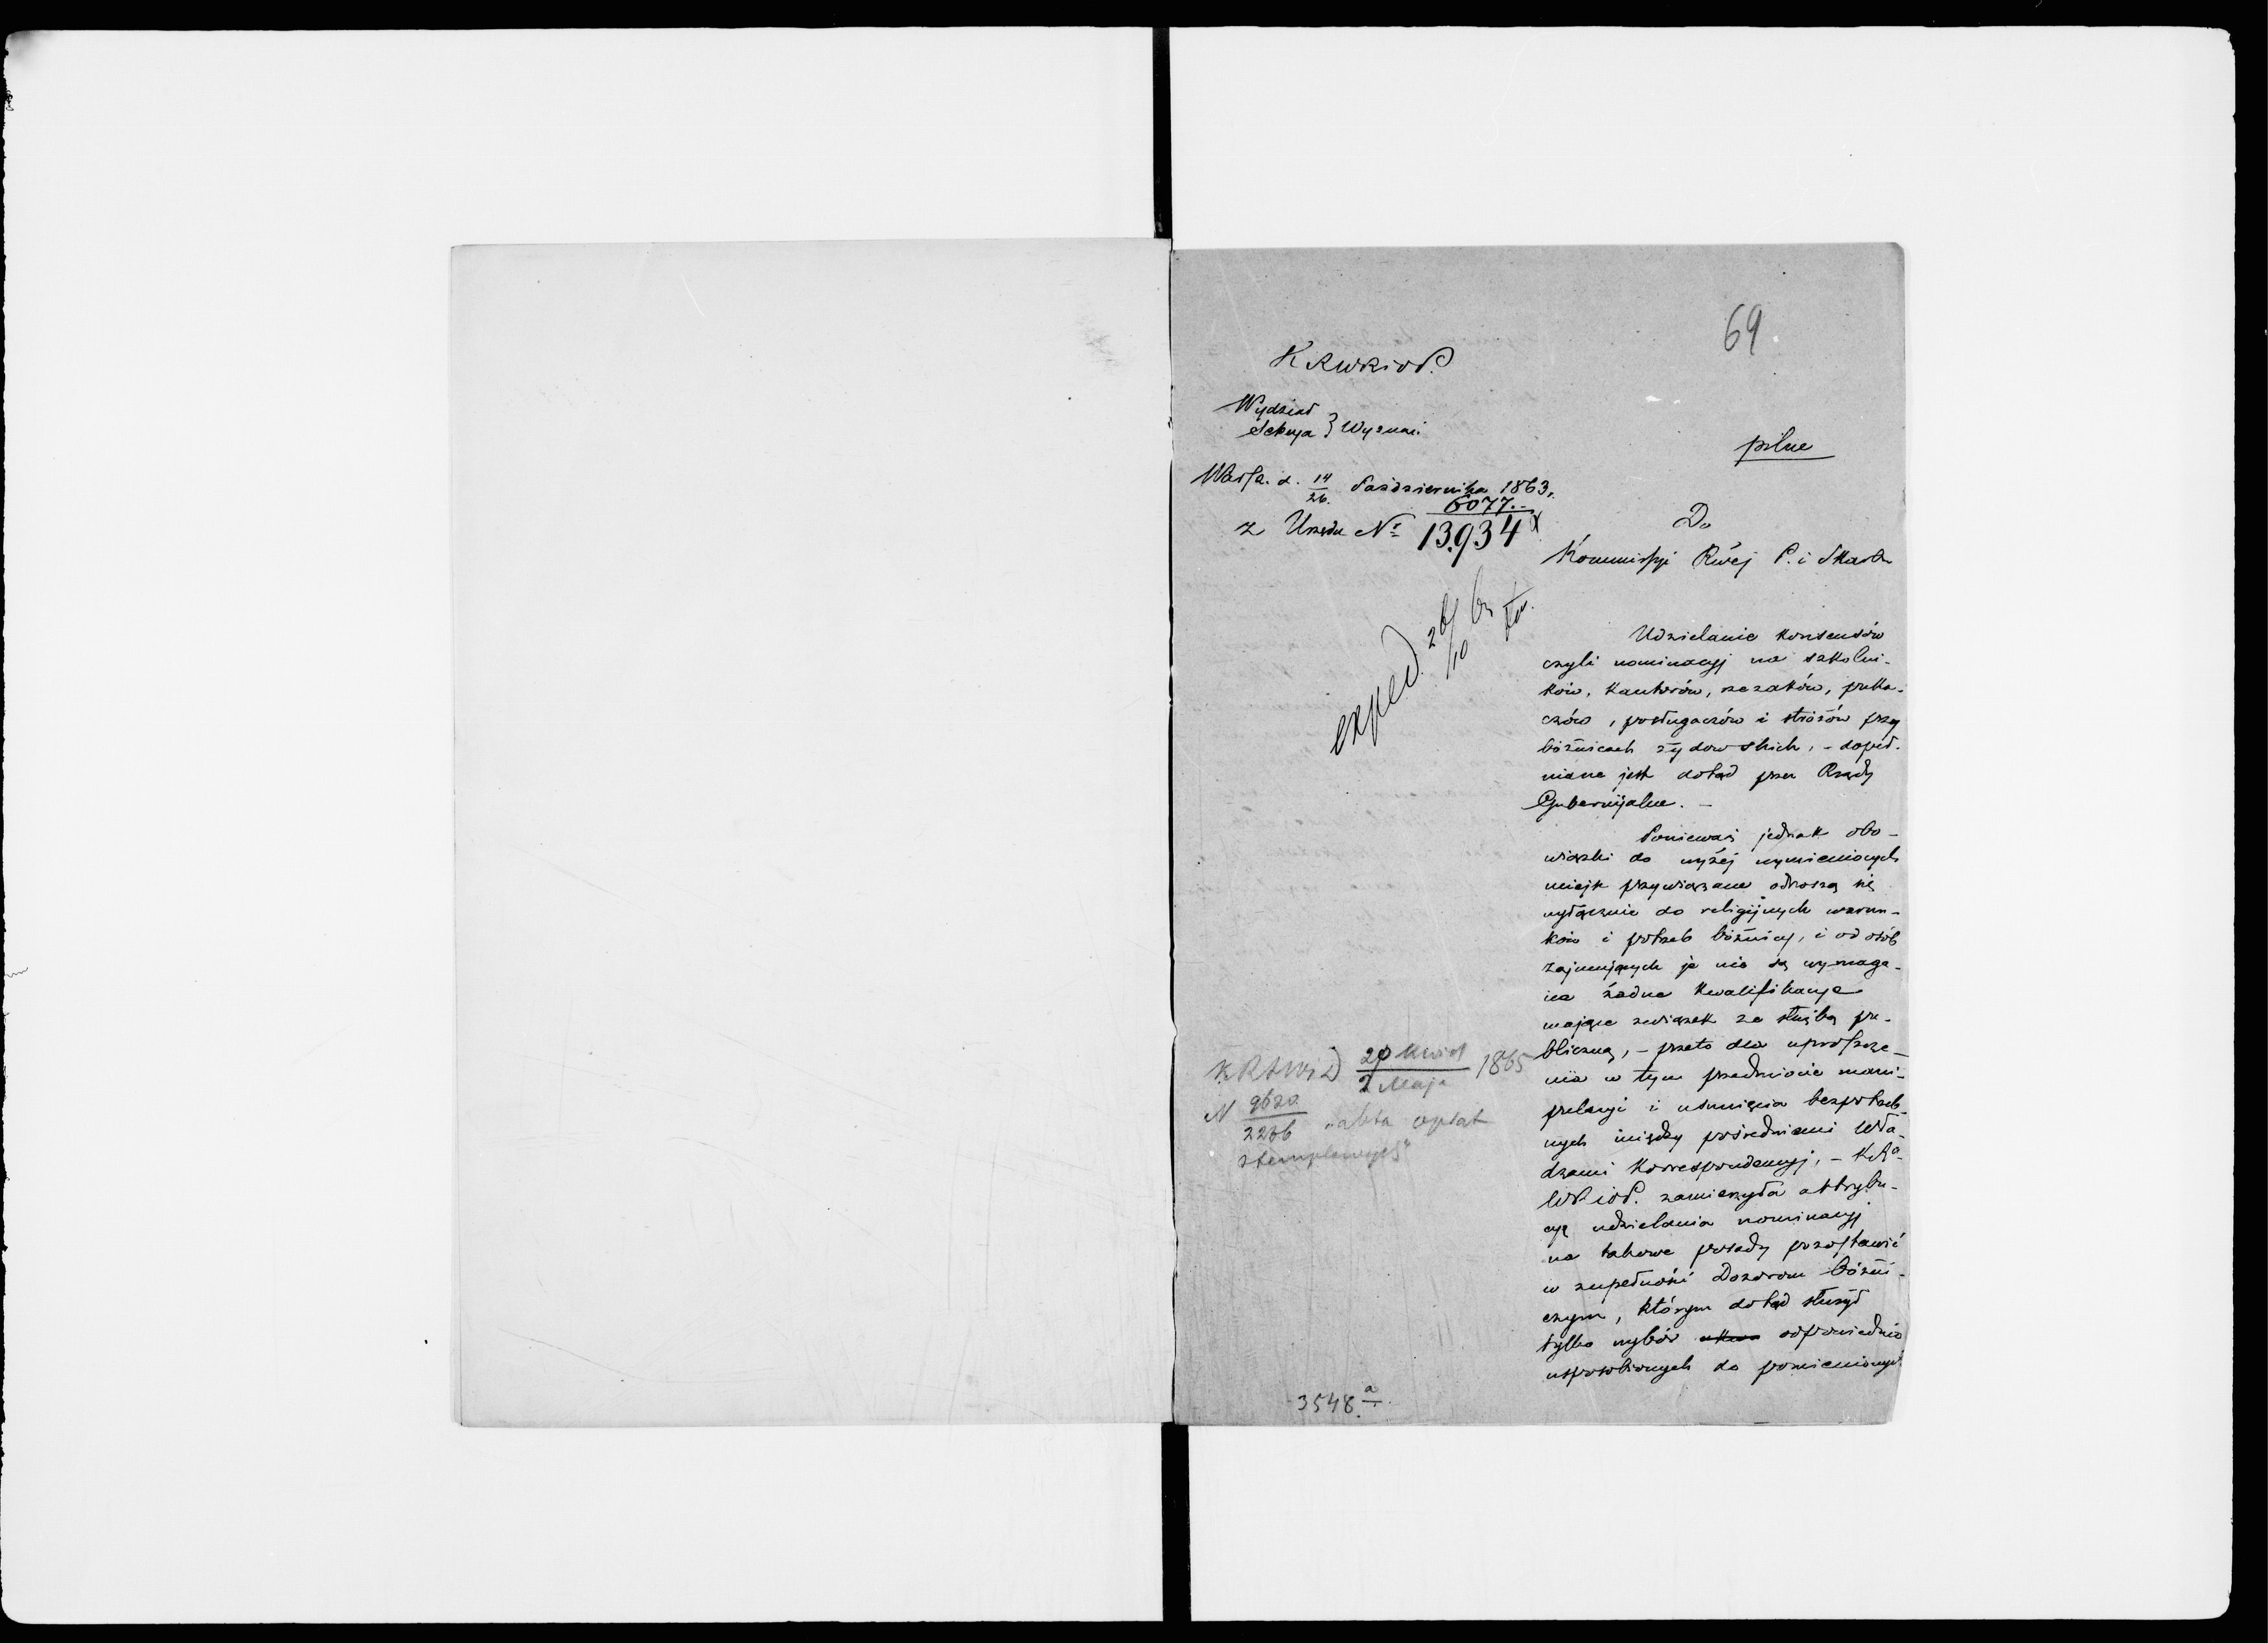 69
KRWRiOP.
Wydział
Sekcya } Wyznań
pilne
Warsz. d. 14/26. Października 1863.
z Urzędu No 6077.-/13,934
Do
Kommissyi Rwéj P. i Skarbu
exped. 26/10 63
Udzielanie konsensów
czyli nominacyj na szkolni-
ków, kantorów, rzezaków, puka-
czów, posługaczów i stróżów przy
bóźnicach żydowskich, - dopeł-
niane jest dotąd przez Rządy
Gubernijalne. -
Ponieważ jednak obo-
wiązki do wyżéj wymienionych
miejsc przywiązane odnoszą się
wyłącznie do religijnych warun-
ków i potrzeb bóźnicy, i od osób
zajmujących je nie są wymaga-
ne żadne kwalifikacye
mające związek ze służbą pu-
bliczną, - przeto dla uproszcze-
nia w tym przedmiocie mani-
pulacyi i usunięcia bezpotrzeb-
nych między pośredniemi Wła-
dzami korrespondencyj, - KRz
WRiOP. zamierzyła attrybu-
cyę udzielania nominacyj
na takowe posady pozostawić
w zupełności Dozorom bóźni-
czym, którym dotąd służył
tylko wybór odpowiednio
usposobionych do pomienionych
KRSWiD 20 Kwiet/2 Maja 1865
N 9620/2236 "akta opłat
stemplowych"
3548 a